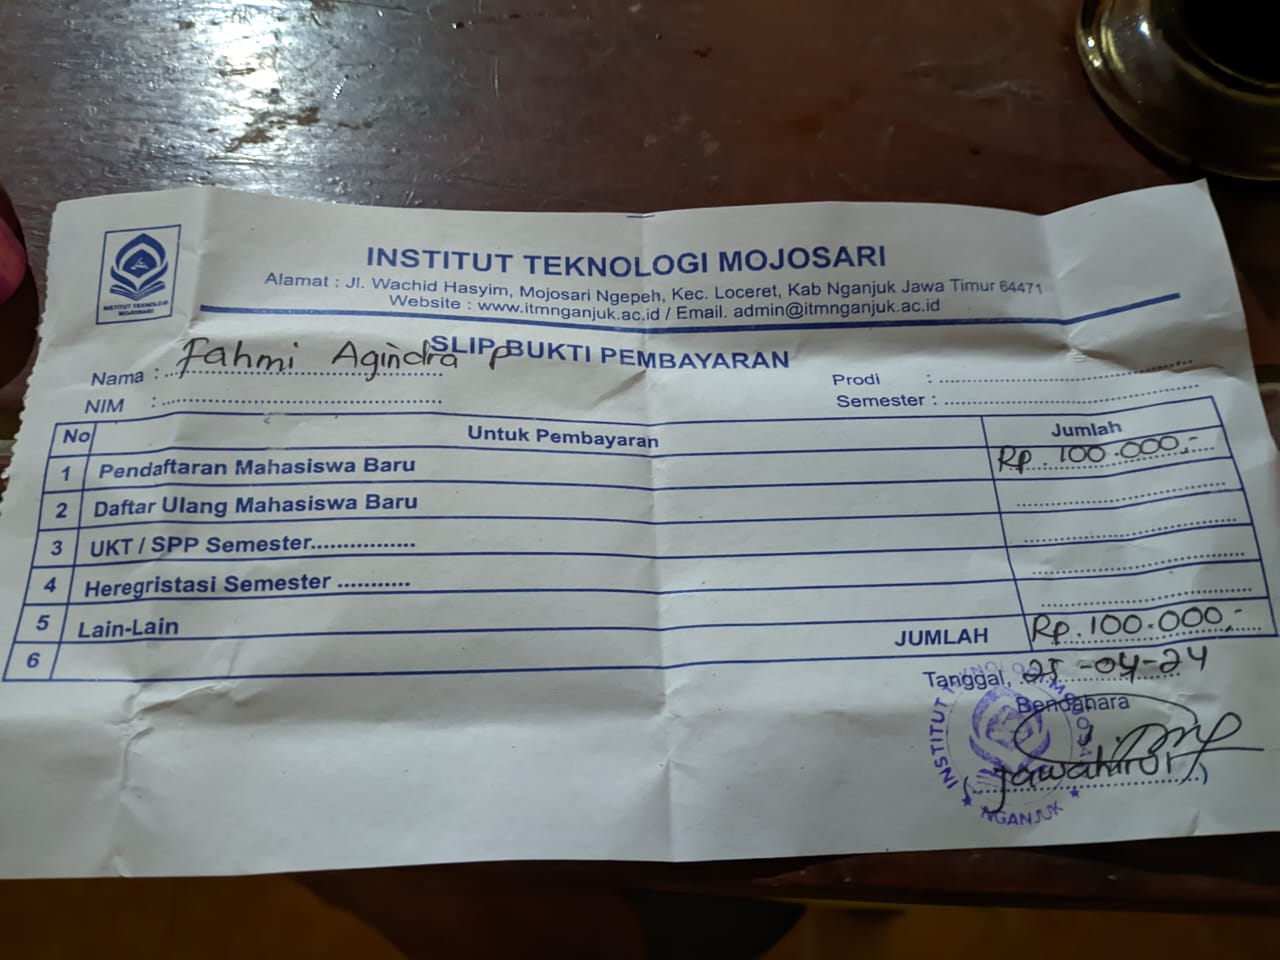 INSTITUT TEKNOLOGI MOJOSARI
INSTITUT TEKNOLOGI MOJOSARI
Alamat : Jl. Wachid Hasyim, Mojosari Ngepeh, Kec. Loceret, Kab Nganjuk Jawa Timur 64471
Website : www.itmnganjuk.ac.id / Email. admin@itmnganjuk.ac.id
SLIP BUKTI PEMBAYARAN
Nama : Fahmi Agindra P
Prodi :
NIM :
Semester :
No Untuk Pembayaran Jumlah
1 Pendaftaran Mahasiswa Baru Rp. 100.000,-
2 Daftar Ulang Mahasiswa Baru
3 UKT / SPP Semester................
4 Heregristasi Semester ...........
5 Lain-Lain
6 JUMLAH Rp. 100.000,-
Tanggal, 25-04-24
Bendahara
INSTITUT TEKNOLOGI MOJOSARI
NGANJUK
(Jawahirul)